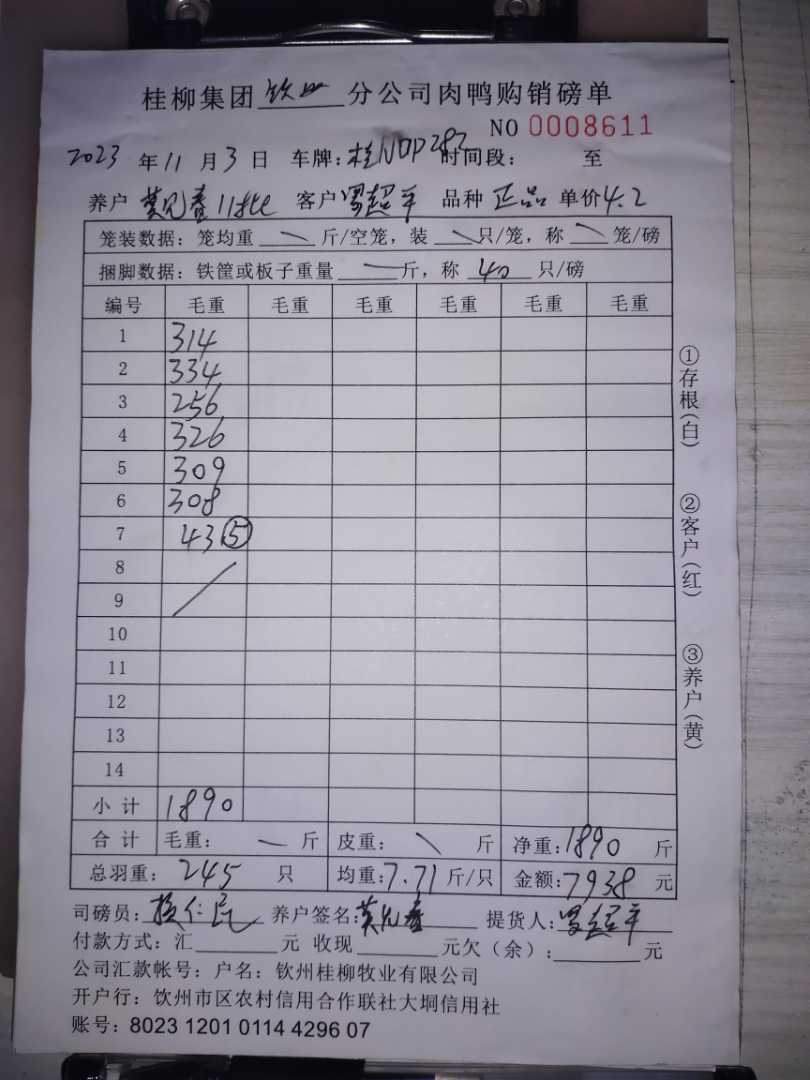 桂柳集团钦州分公司肉鸭购销磅单
NO 0008611
2023年11月3日 车牌:桂N0P282 时间段: 至
养户 莫见春11批 客户罗超平 品种 正品 单价4.2
笼装数据:笼均重 \ 斤/空笼,装 \ 只/笼,称 \ 笼/磅
捆脚数据:铁筐或板子重量 — 斤,称 40 只/磅
编号 毛重 毛重 毛重 毛重 毛重 毛重
1 314
2 334
3 256
4 326
5 309
6 308
7 43⑤
8
9
10
11
12
13
14
小计 1890
合计 毛重: — 斤 皮重: \ 斤 净重:1890 斤
总羽重: 245 只 均重:7.71斤/只 金额:7938元
司磅员: 养户签名:莫见春 提货人:罗超平
付款方式:汇 元 收现 元欠(余): 元
公司汇款帐号:户名:钦州桂柳牧业有限公司
开户行:饮州市区农村信用合作联社大垌信用社
账号:8023 1201 0114 4296 07
①存根(白)
②客户(红)
③养户(黄)